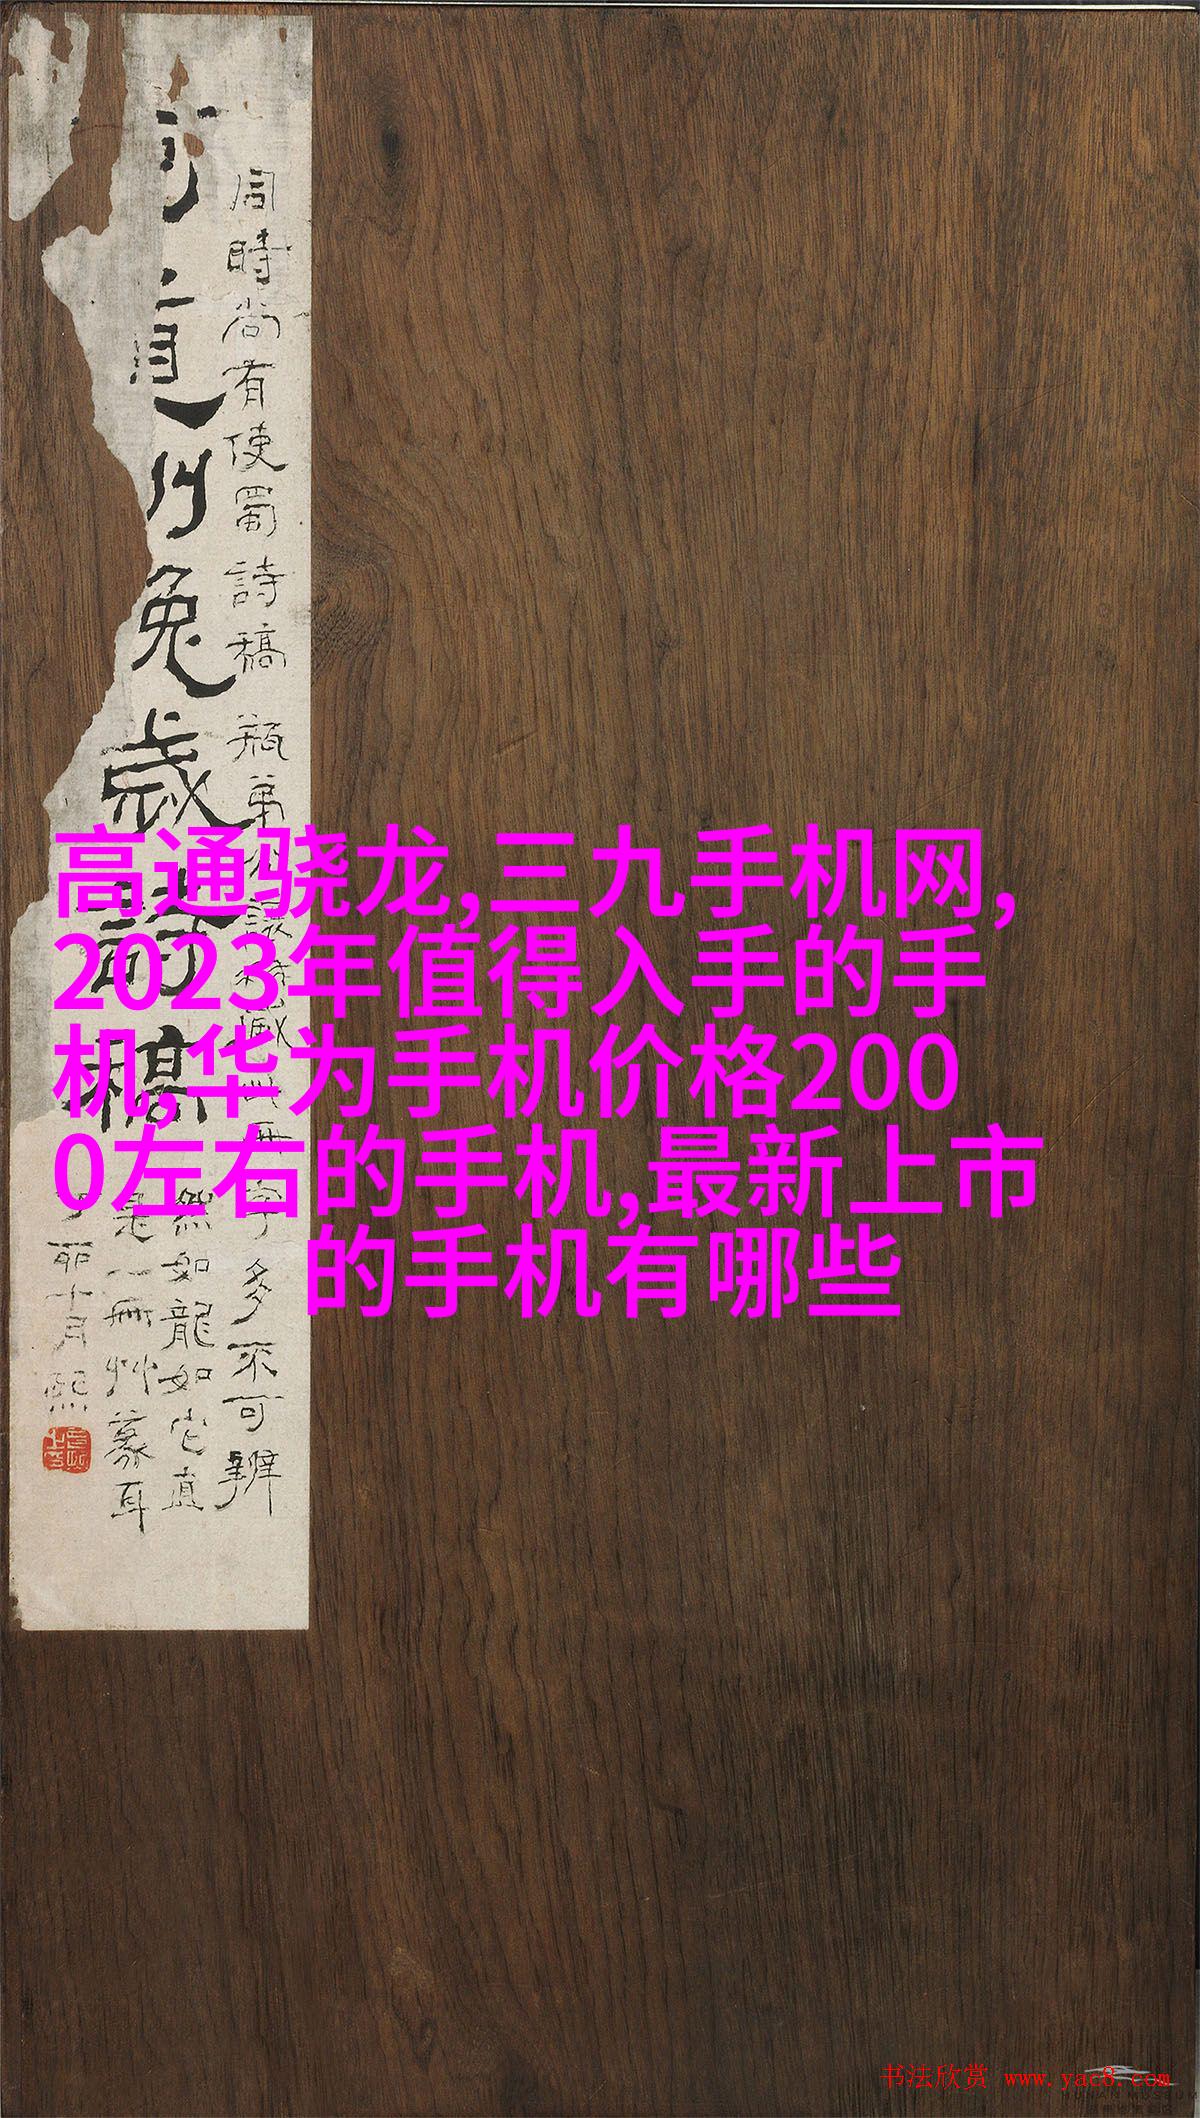 同時尚有使蜀詩稿
兔歲詩稿
多不可辨
然如龍如蛇直
是一冊艸篆耳
丁卯十月熙
高通骁龙,三九手机网,
2023年值得入手的手
机,华为手机价格200
0左右的手机,最新上市
的手机有哪些
书法欣赏 www.yac8.com
HUNAN MUSEUM